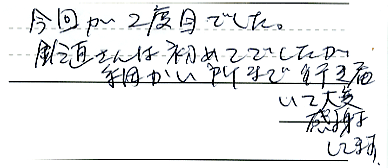 今回が2度目でした。
鈴直さんは初めてでしたが
細かい所まで行き届
いて大変
感謝
してます